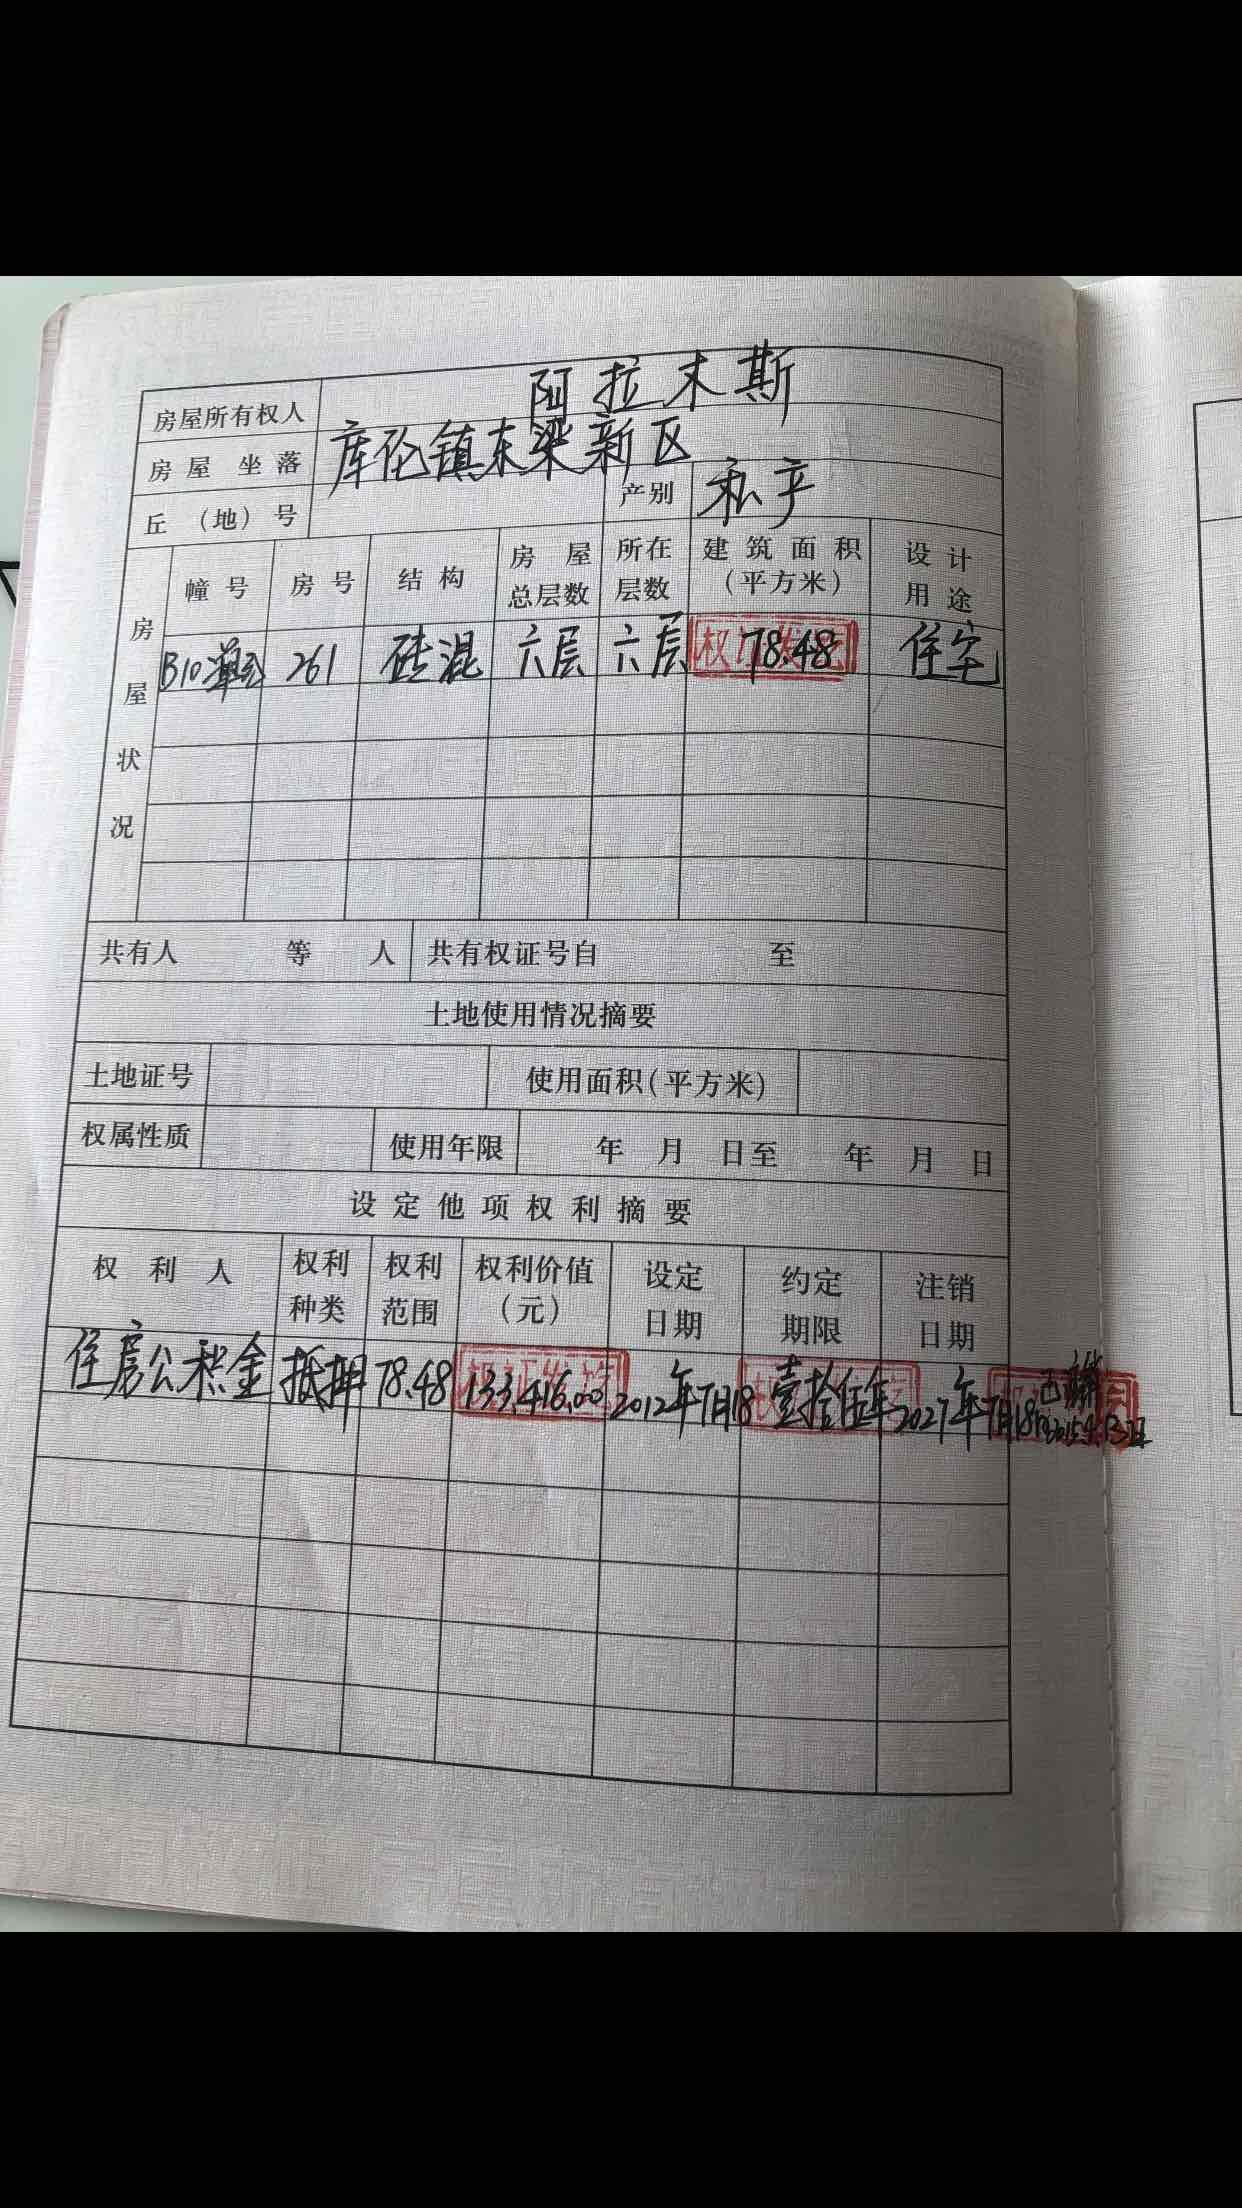 房屋所有权人 阿拉木斯
房屋坐落 库伦镇东梁新区
丘（地）号 产别 私产
房屋状况
幢号 房号 结构 房屋总层数 所在层数 建筑面积（平方米） 设计用途
B10 261 砖混 六层 六层 78.48 住宅
共有人 等 人 共有权证号自 至
土地使用情况摘要
土地证号 使用面积(平方米)
权属性质 使用年限 年 月 日至 年 月 日
设定他项权利摘要
权利人 权利种类 权利范围 权利价值（元） 设定日期 约定期限 注销日期
住房公积金 抵押 78.48 133,416.00 2012年7月18 壹拾伍年 2027年7月18